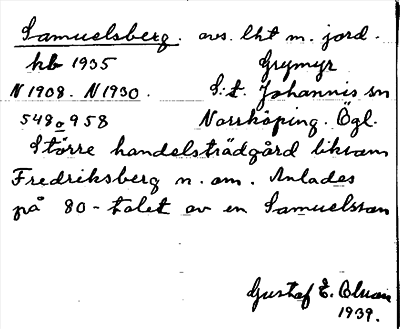 Samuelsberg. avs. lht m. jord.
hb 1935 Grymyr
N 1908. N 1930. S:t. Johannis sn
548 o 958 Norrköping. Ögl.
Större handelsträdgård liksom
Fredriksberg n. om. Anlades
på 80-talet av en Samuelsson
Gustaf E.
1939.